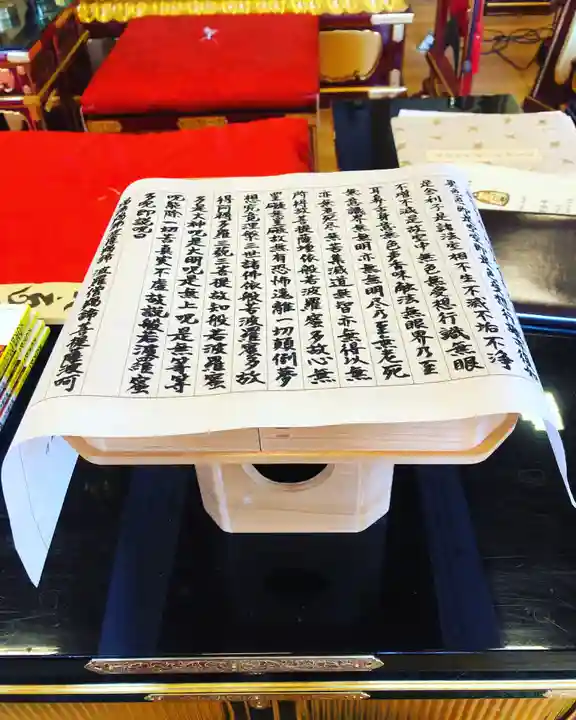 是舎利子是諸法空相不生不滅不垢不浄
不増不減是故空中無色無受想行識無眼
耳鼻舌身意無色声香味触法無眼界乃至
無意識界無無明亦無無明尽乃至無老死
亦無老死尽無苦集滅道無智亦無得以無
所得故菩提薩埵依般若波羅蜜多故心無
罣礙無罣礙故無有恐怖遠離一切顛倒夢
想究竟涅槃三世諸佛依般若波羅蜜多故
得阿耨多羅三藐三菩提故知般若波羅蜜
多是大神呪是大明呪是無上呪是無等等
呪能除一切苦真実不虚故説般若波羅蜜
多呪即説呪曰
羯諦羯諦波羅羯諦波羅僧羯諦菩提薩婆訶